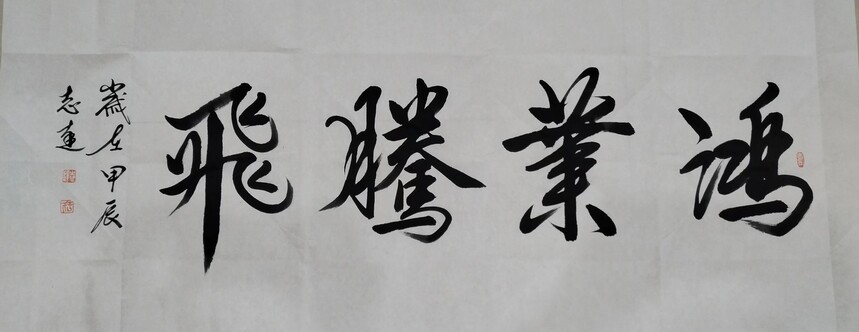 鴻業騰飛
歲在甲辰
志達